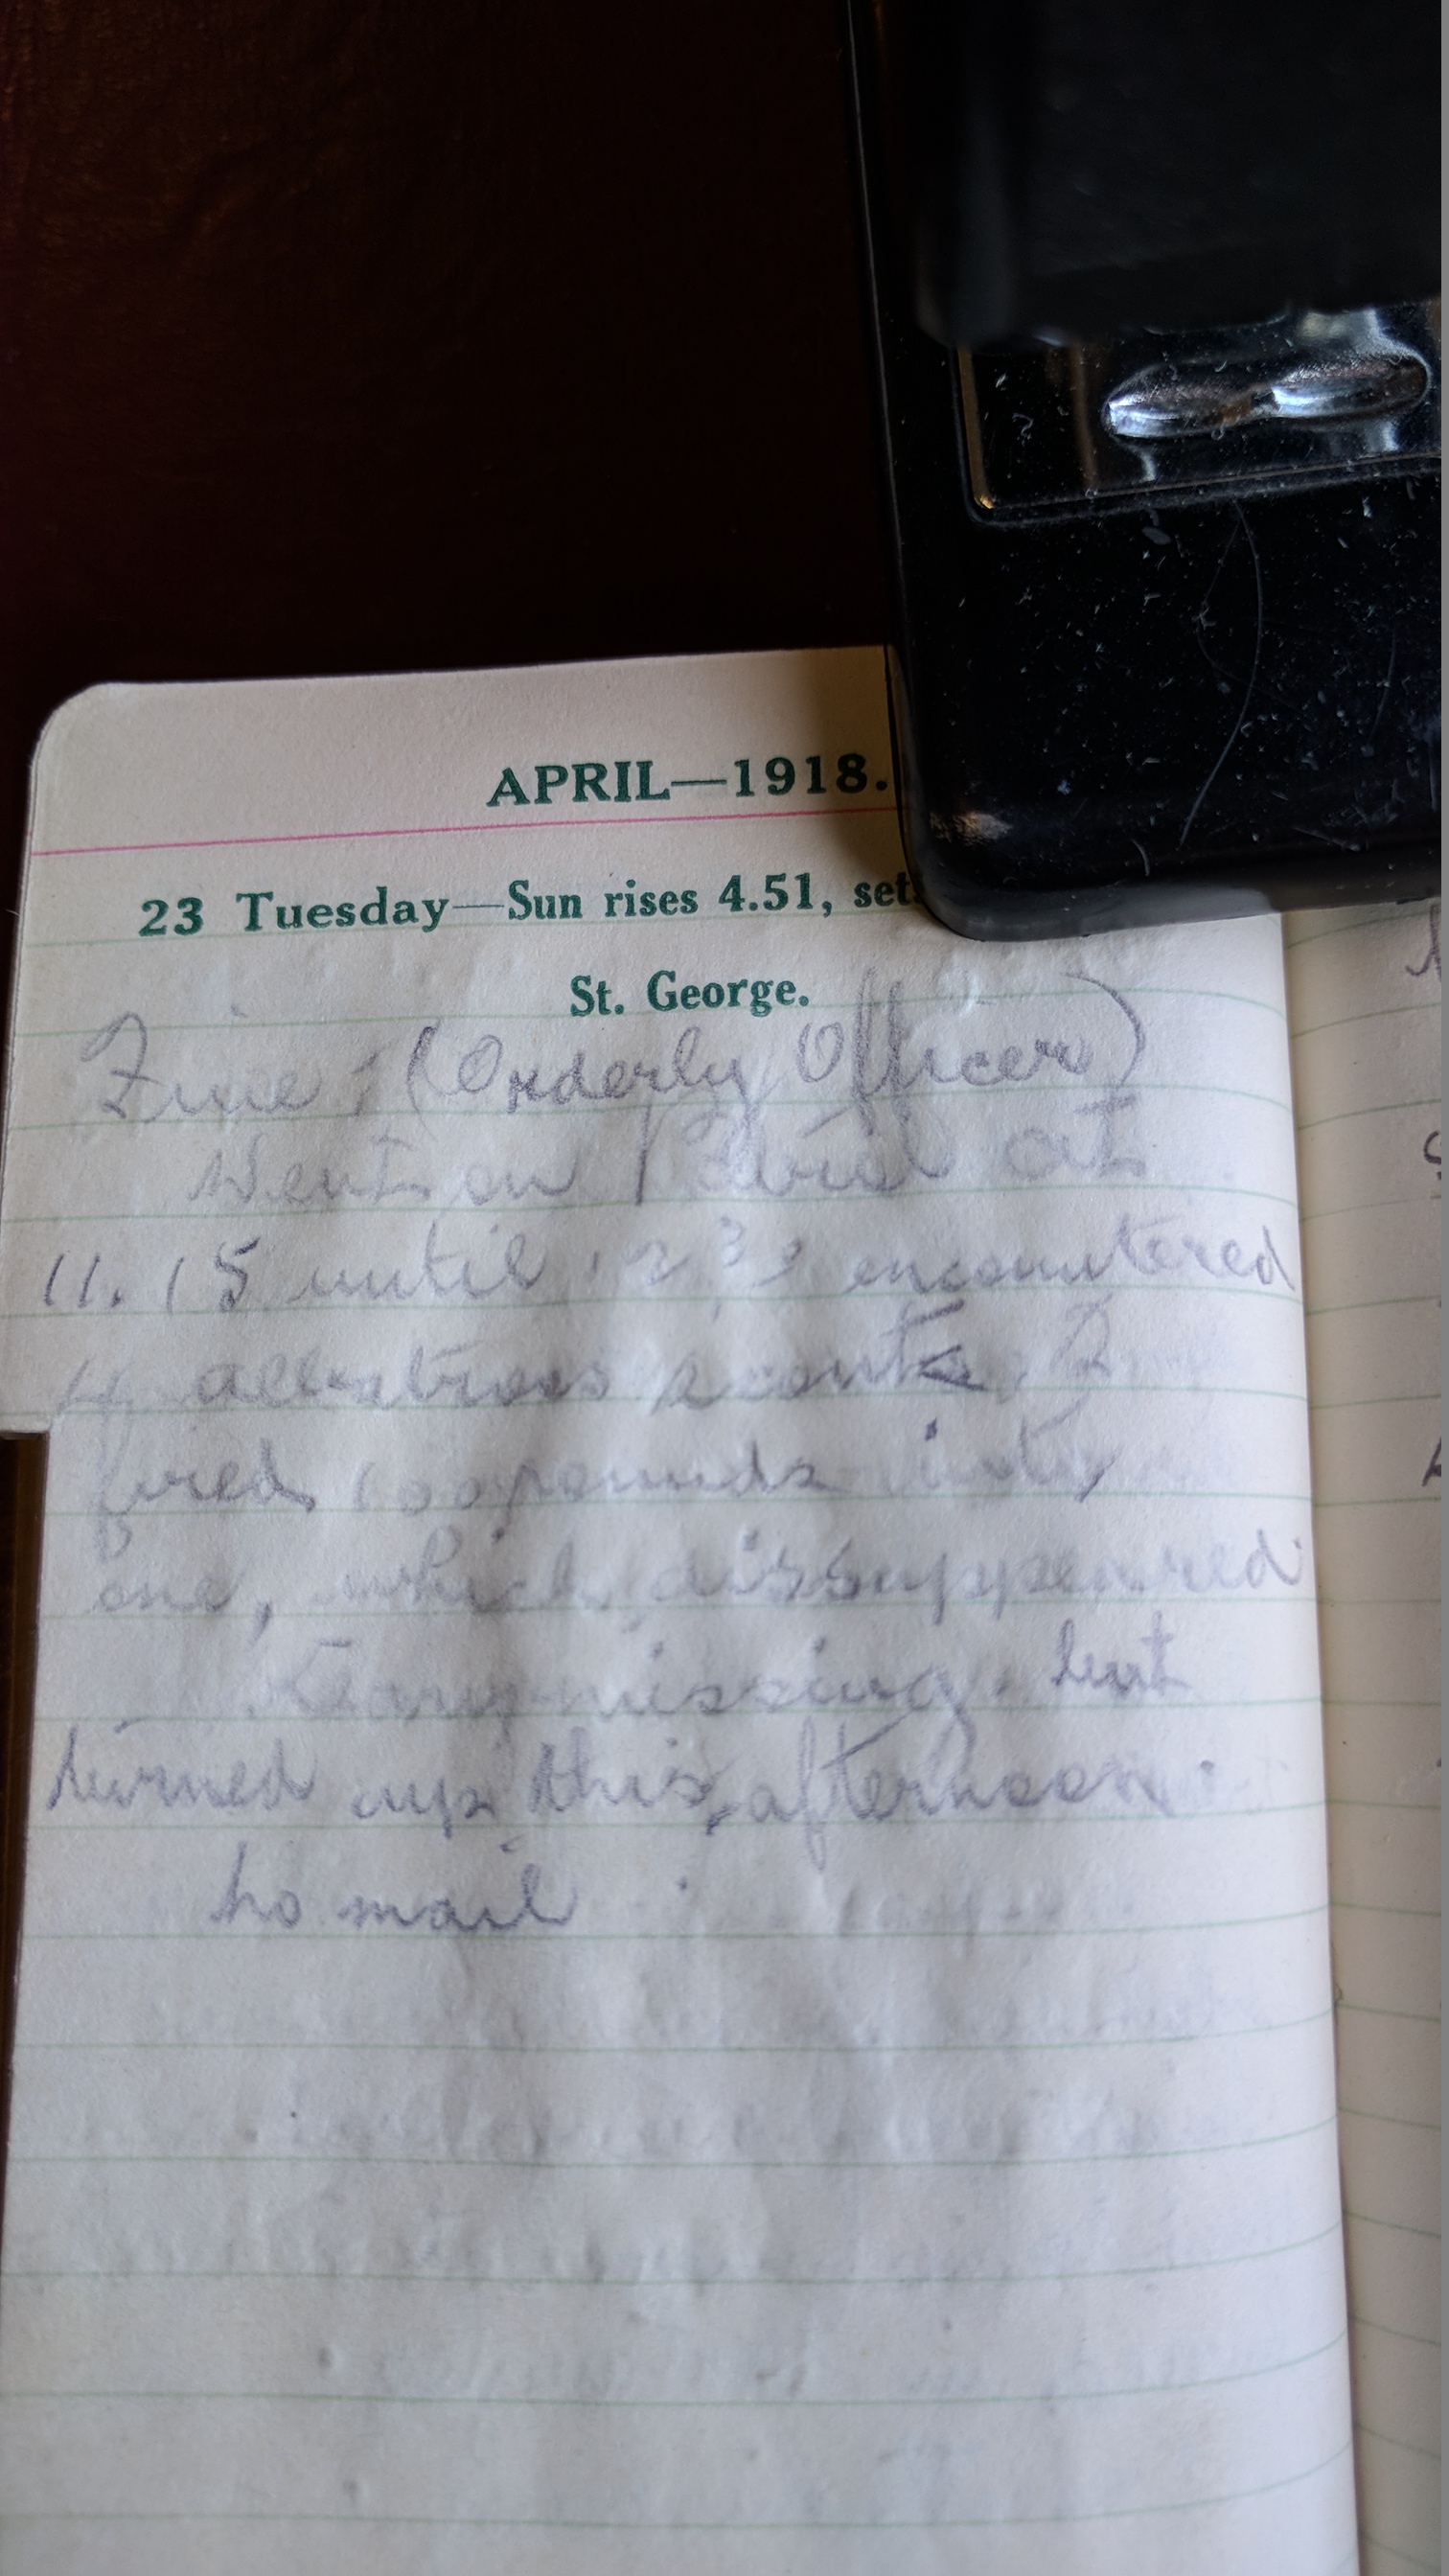 APRIL—1918.
23 Tuesday—Sun rises 4.51, sets
St. George.
Fine, (Orderly Officer)
Went on Patrol at
11.15 until 1230 encountered
4 albatross scouts. I
fired 100 rounds into
one, which dissappeared
missing. but
turned up this afternoon.
no mail